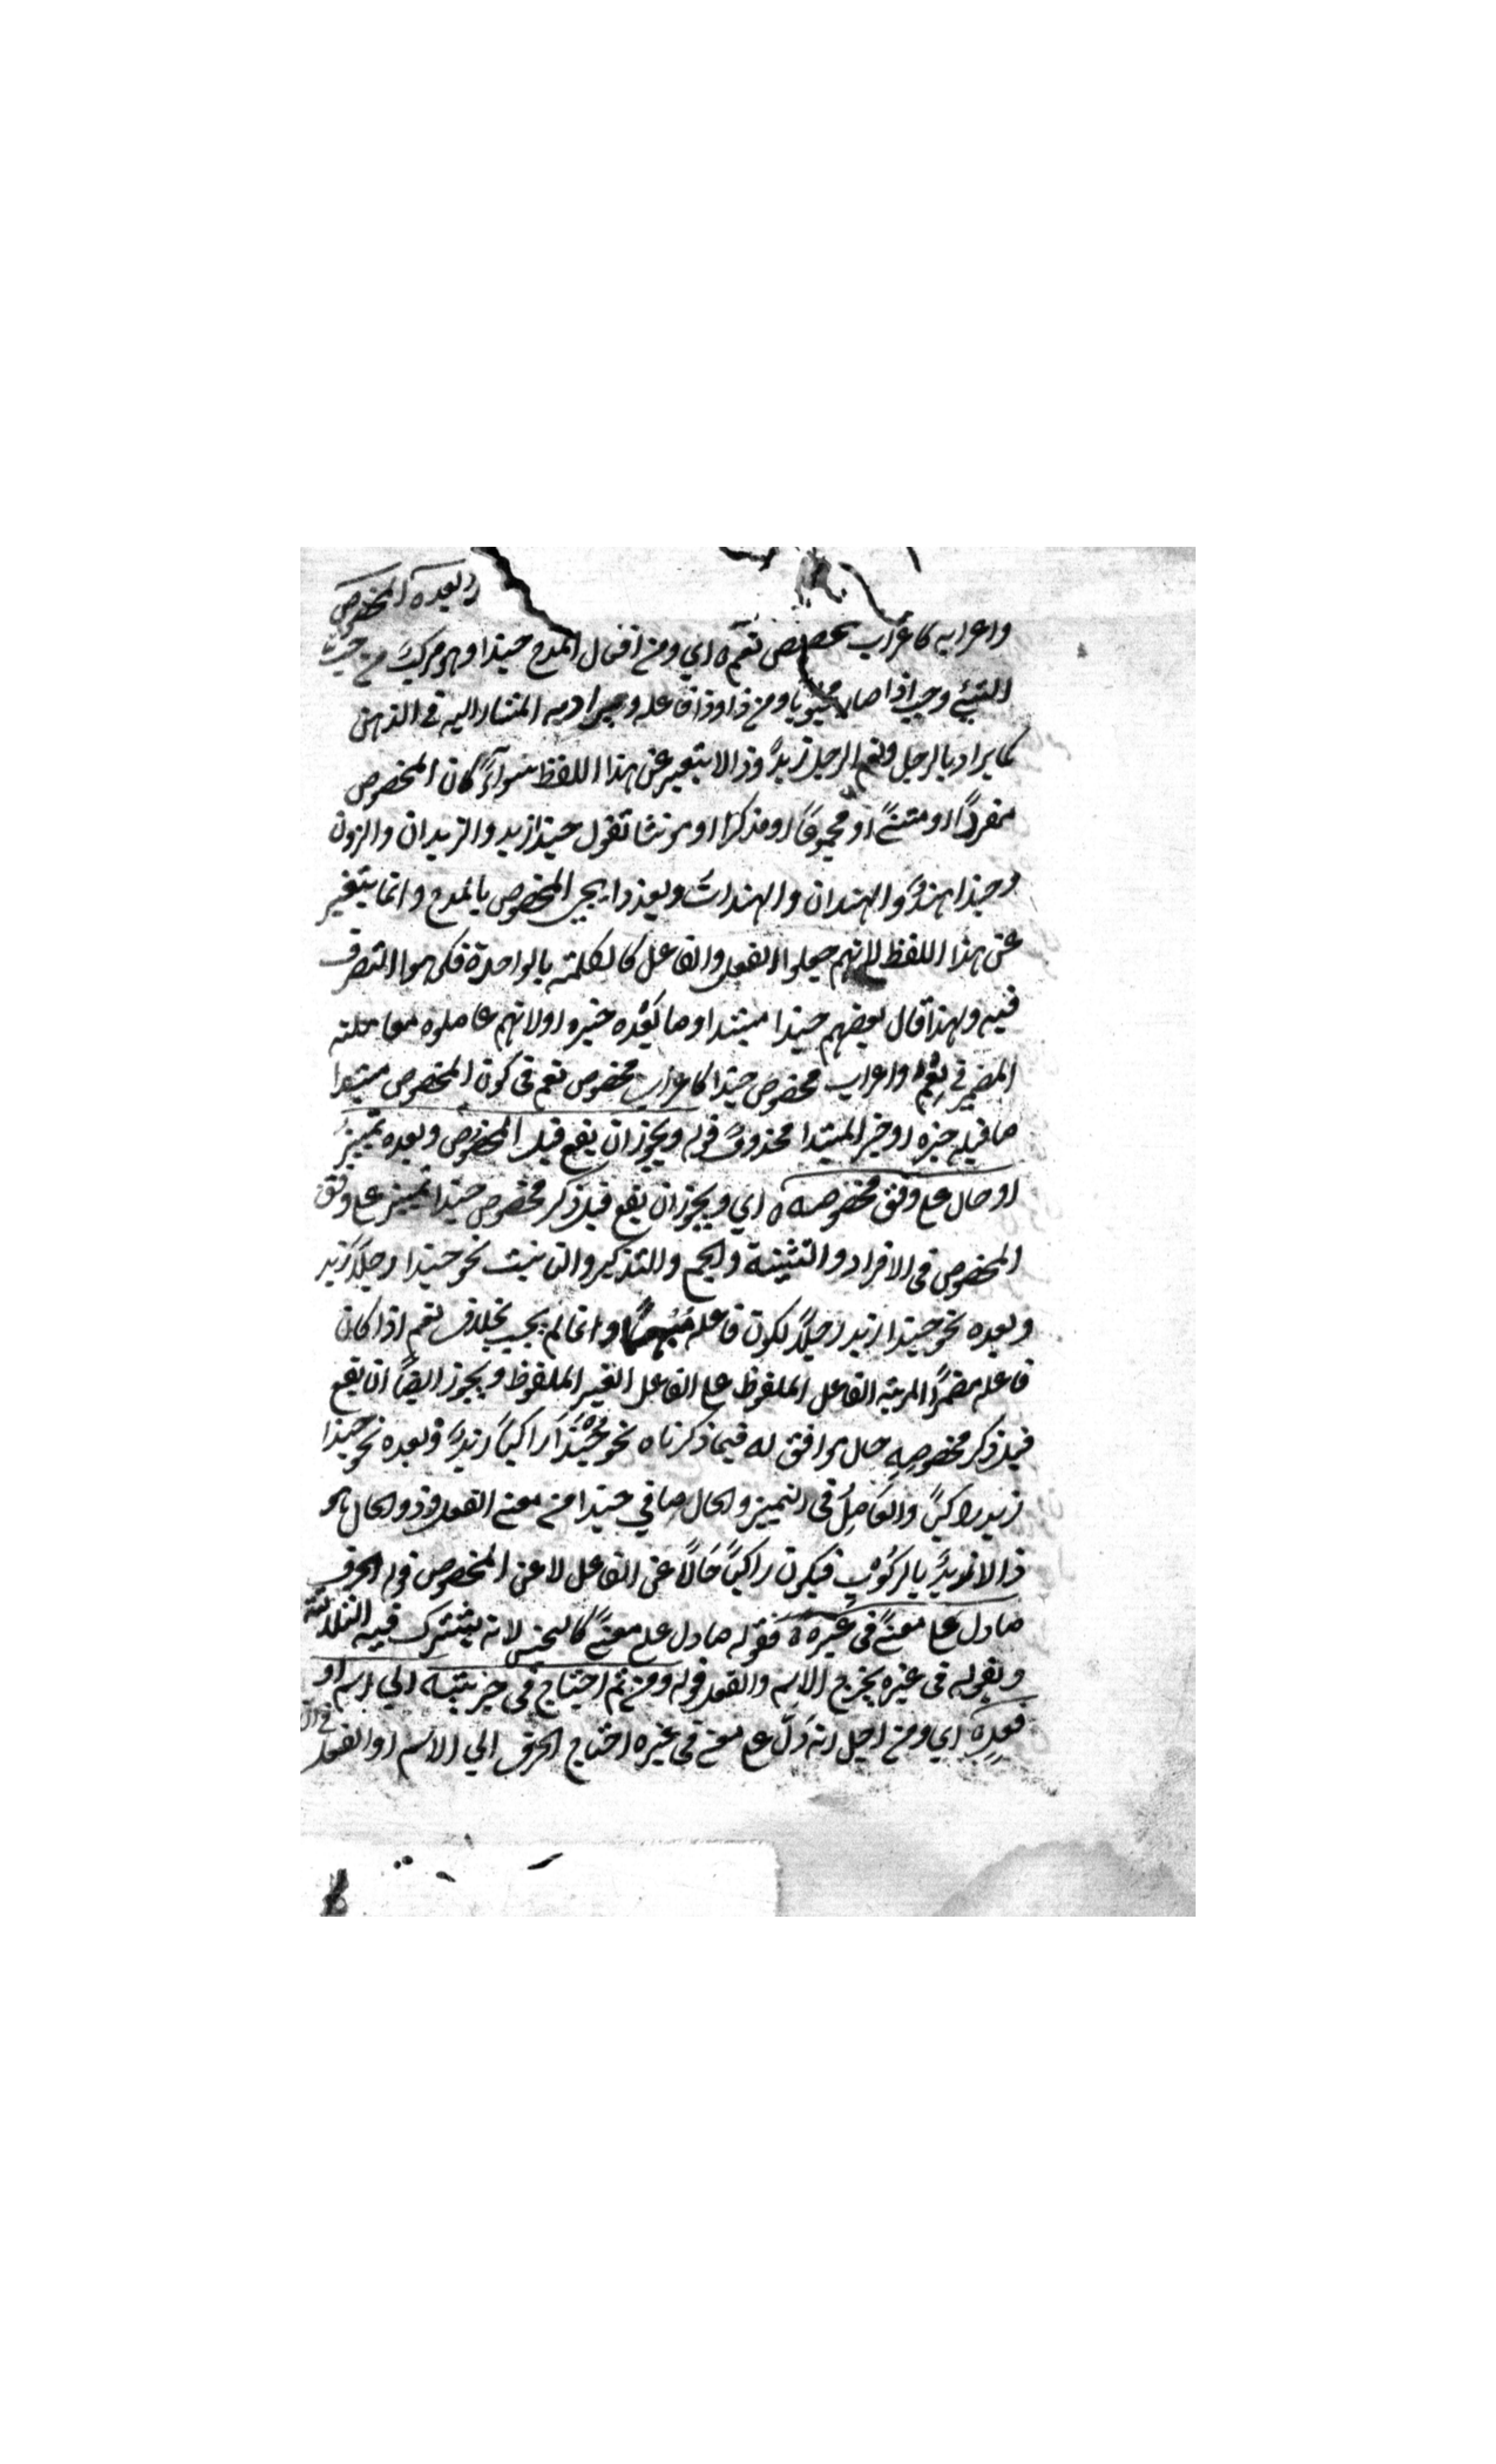 وبعده المخصوص
واعرابه كاعراب مخصوص نعم ه اي ومن افعال المدح حبذا وهو مركب من حب
الشئ وحب اذا صار محبوبا ومن ذا وذا فاعله ويراد به المشار اليه في الذهن
كما يراد بالرجل في نعم الرجل زيدٌ وذا لا يتغير عن هذا اللفظ سوآءً كان المخصوص
مفردًا او مثنىً او مجموعًا او مذكرا او مونثا تقول حبذا زيد والزيدان والزيدون
وحبذا هندٌ والهندان والهنداتُ وبعد ذا يجي المخصوص بالمدح وانما يتغير
عن هذا اللفظ لانهم جعلوا الفعل والفاعل كالكلمة الواحدة فكرهوا التصرف
فيه ولهذا قال بعضهم حبذا مبتدا وما بَعْده خبره او لانهم عاملوه معاملة
المضمر في نِعْمَ واعراب مخصوص حبذا كاعراب مخصوص نعم في كون المخصوص مبتدا
ما قبله خبره او خبر المبتدا محذوف قوله ويجوز ان يقع قبل المخصوص وبعده تمييزٌ
او حال على وفق مخصوصه ه اي ويجوز ان يقع قبل ذكر مخصوص حبذا تمييز على وفق
المخصوص في الافراد والتثنية والجمع والتذكير والتانيث نحو حبذا رجلًا زيد
وبعده نحو حبذا زيد رجلًا لكون فاعله مُبْهمًا وانما لم يجب بخلاف نعم اذا كان
فاعله مضمرًا لمزية الفاعل الملفوظ على الفاعل الغير الملفوظ ويجوز ايضًا ان يقع
قبل ذكر مخصوصِهِ حال موافق له فيما ذكرناه نحو حَبَّذَا رَاكبًا زيدٌ وبعده نحو حبذا
زيد راكبًا والعَامِلُ في التمييز والحال ما في حبذا من معنى الفعل وذو الحال هو
ذا لا زيدٌ بالركُوْب فيكون راكبًا حَالًا عن الفاعل لا عن المخصوص قوله الحرف
ما دل على معنىً في غَيْرِهِ ه فقوله ما دل على معنىً كالجنس لانه يشترك فيه الثلاثة
وبقوله في غيره يخرج الاسم والفعل قوله ومن ثم احتاج في جزئيته الي اسم او
فعلٍ ه اي ومن اجل انه دَلَّ على معنى في غيره احتاج الحرف الي الاسم او الفعل